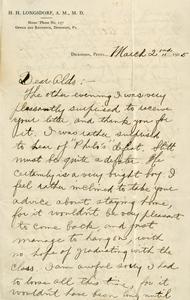 H. H. LONGSDORF, A. M., M. D.
Home 'Phone No. 257
Office and Residence, Dickinson, Pa.
Dickinson, Penn'a. March 2nd 1905
Dear Aldo:-
The other evening I was very
pleasantly surprised to receive
your letter and thank you for
it. I was rather surprised
to hear of Philo's defeat. Still
must be quite a debater. He
certainly is a very bright boy. I
feel rather inclined to take your
advice about staying home,
for it wouldn't be very pleasant
to come back and just
manage to hang on, with
no hope of graduating with the
class. I am awful sorry I had
to lose all this time, for it
wouldn't have been long until